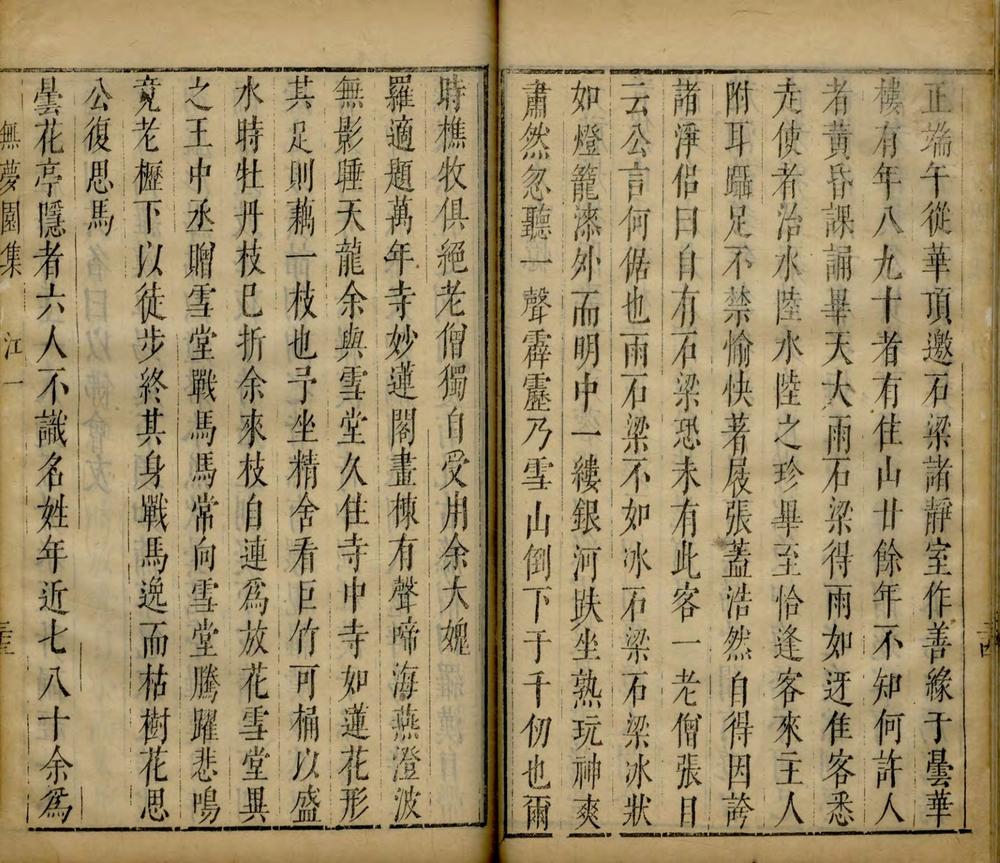 正端午從華頂邀石梁諸靜室作善緣于曇華
樓有年八九十者有住山廿餘年不知何許人
者黃昏課誦畢天大雨石梁得雨如迓佳客悉
走使者治水陸水陸之珍畢至恰逢客來主人
附耳躡足不禁愉快著屐張蓋浩然自得因誇
諸淨侶曰自有石梁恐未有此客一老僧張目
云公言何倨也雨石梁不如冰石梁石梁冰狀
如燈籠漆外而明中一縷銀河趺坐熟玩神爽
肅然忽聽一聲霹靂乃雪山倒下于千仞也爾
時樵牧俱絕老僧獨自受用余大媿
羅適題萬年寺妙蓮閣畫棟有聲啼海燕澄波
無影睡天龍余與雪堂久住寺中寺如蓮花形
其足則藕一枝也予坐精舍看巨竹可桶以盛
水時牡丹枝已折余來枝自連為放花雪堂異
之王中丞贈雪堂戰馬馬常向雪堂騰躍悲鳴
竟老櫪下以徒步終其身戰馬逸而枯樹花思
公復思馬
曇花亭隱者六人不識名姓年近七八十余為
無夢園集 江一